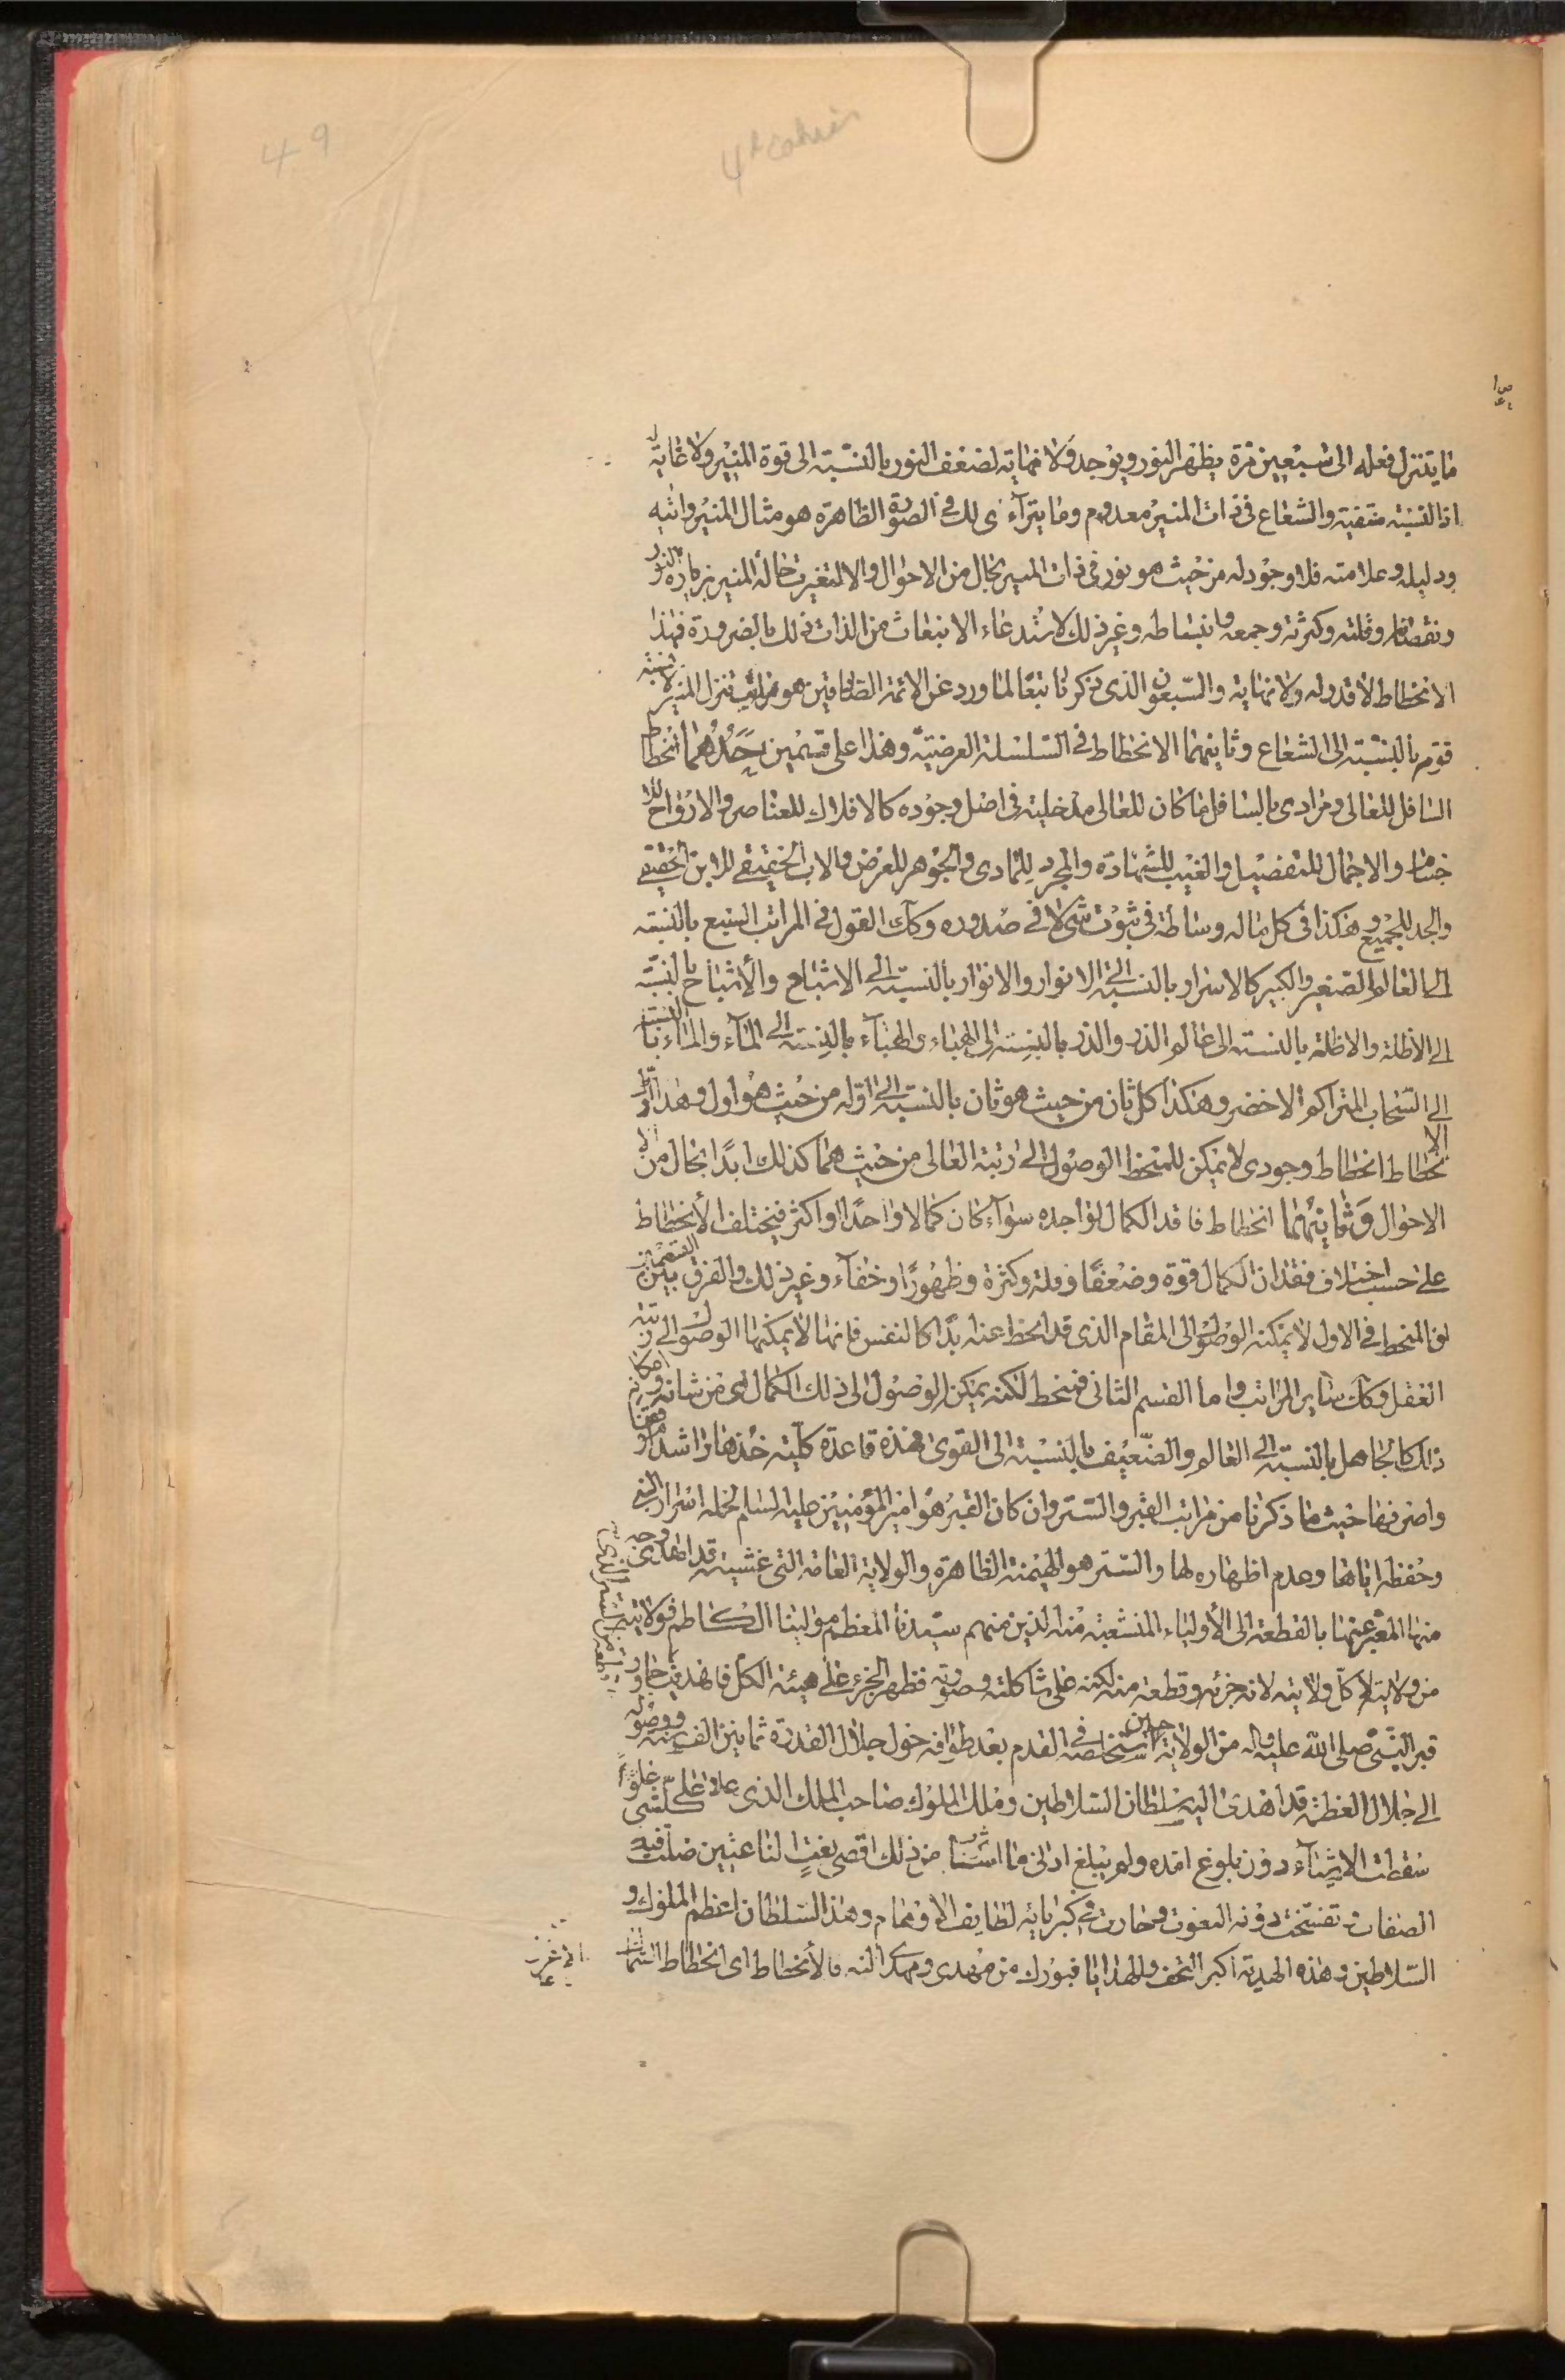 49
4e cahier
ما يتنزل فعله الى سبعين مرة يظهر النور ويوجد ولا نهاية لضعف النور بالنسبة الى قوة المنير ولا غاية له
اذ النسبة منفية والشعاع في ذات المنير معدوم وما يترآءى لك في الصورة الظاهرة هو مثال المنير وانيه
ودليله وعلامته فلا وجود له من حيث هو نور في ذات المنير بحال من الاحوال والا لتغيرت حالة المنير بزيادة النور
ونقصانه وقلته وكثرته وجمعه وانبساطه وغير ذلك لاستدعاء الانبعاث من الذات ذلك بالضرورة فهذا
الانحطاط لا قدر له ولا نهاية والسبعون الذي ذكرنا تبعا لما ورد عن الائمة الصادقين هو مراتب تنزل المنير لا نسبة
قوته بالنسبة الى الشعاع وثانيهما الانحطاط في السلسلة العرضية وهذا على قسمين احدهما انحطاط
السافل للعالى ومرادى بالسافل ما كان للعالى مدخلية في اصل وجوده كالافلاك للعناصر والارواح للا
جسام والاجمال للتفصيل والغيب للشهادة والمجرد للمادى والجوهر للعرض والاب الحقيقي للابن الحقيقي
والجد للجميع وهكذا في كل ما له وساطة في ثبوت شئ لا في صدوره وكك القول في المراتب السبع بالنسبة
الى العالم الصغير والكبير كالاسرار بالنسبة الى الانوار والانوار بالنسبة الى الاشباح والأشباح بالنسبة
الى الاظلة والاظلة بالنسبة الى عالم الذر والذر بالنسبة الى الهباء والهباء بالنسبة الى المآء والماء بالنسبة
الى السحاب المتراكم الاخضر وهكذا كل ثان من حيث هو ثان بالنسبة الى اوله من حيث هو اول وهذا
الانحطاط انحطاط وجودى لا يمكن للمنحط الوصول الى رتبة العالى من حيث هما كذلك ابدًا بحال من
الاحوال وثانيهما انحطاط فاقد الكمال لواجده سوآء كان كمالا واحدًا او اكثر فيختلف الأنحطاط
على حسب اختلاف فقدان الكمال قوة وضعفًا وقلة وكثرة وظهورًا وخفآء وغير ذلك والفرق بين القسمين
ان المنحط في الاول لا يمكنه الوصول الى المقام الذي قد انحط عنه ابدًا كالنفس فانها لا يمكنها الوصول الى رتبة
العقل وكك ساير المراتب واما القسم الثانى فمنحط لكنه يمكن الوصول الى ذلك الكمال اى من شانه وامكانه
ذلك كالجاهل بالنسبة الى العالم والضعيف بالنسبة الى القوى فهذه قاعدة كلية خذها راشدًا موفقا
واصرفها حيث ما ذكرنا من مراتب القبر والستر وان كان القبر هو امير المؤمنين عليه السلام لحمله اسرار النبي
وحفظه اياها وعدم اظهاره لها والستر هو الهيمنة الظاهرة والولاية العامة التي غشيته قد اهدى
منها المعبر عنها بالقطعة الى الأولياء المنشعبة منه الذين منهم سيدنا المعظم مولينا الكاظم فولايته
من ولايته لا كل ولايته لانه جزئه وقطعة منه لكنه على شاكلته وصورته فظهر الجزء على هيئة الكل فاهديت
قبر النبي صلى الله عليه واله من الولاية حين استخلصه في القدم بعد طوافه حول جلال القدرة ثمانين الف سنة ووصوله
الى جلال العظمة قد اهدى اليه سلطان السلاطين وملك الملوك صاحب الملك الذى علا على كلشى علوًا
سقطت الاشيآء دون بلوغ امده ولم يبلغ ادنى ما استأثر من ذلك اقصى نعت الناعتين ضلت فيه
الصفات وتفسخت دونه النعوت وحارت في كبريائه لطايف الاوهام وهذا السلطان اعظم الملوك و
السلاطين وهذه الهدية اكبر التحف والهدايا فبورك من مهدى ومهدى اليه والأنحطاط اى انحطاط